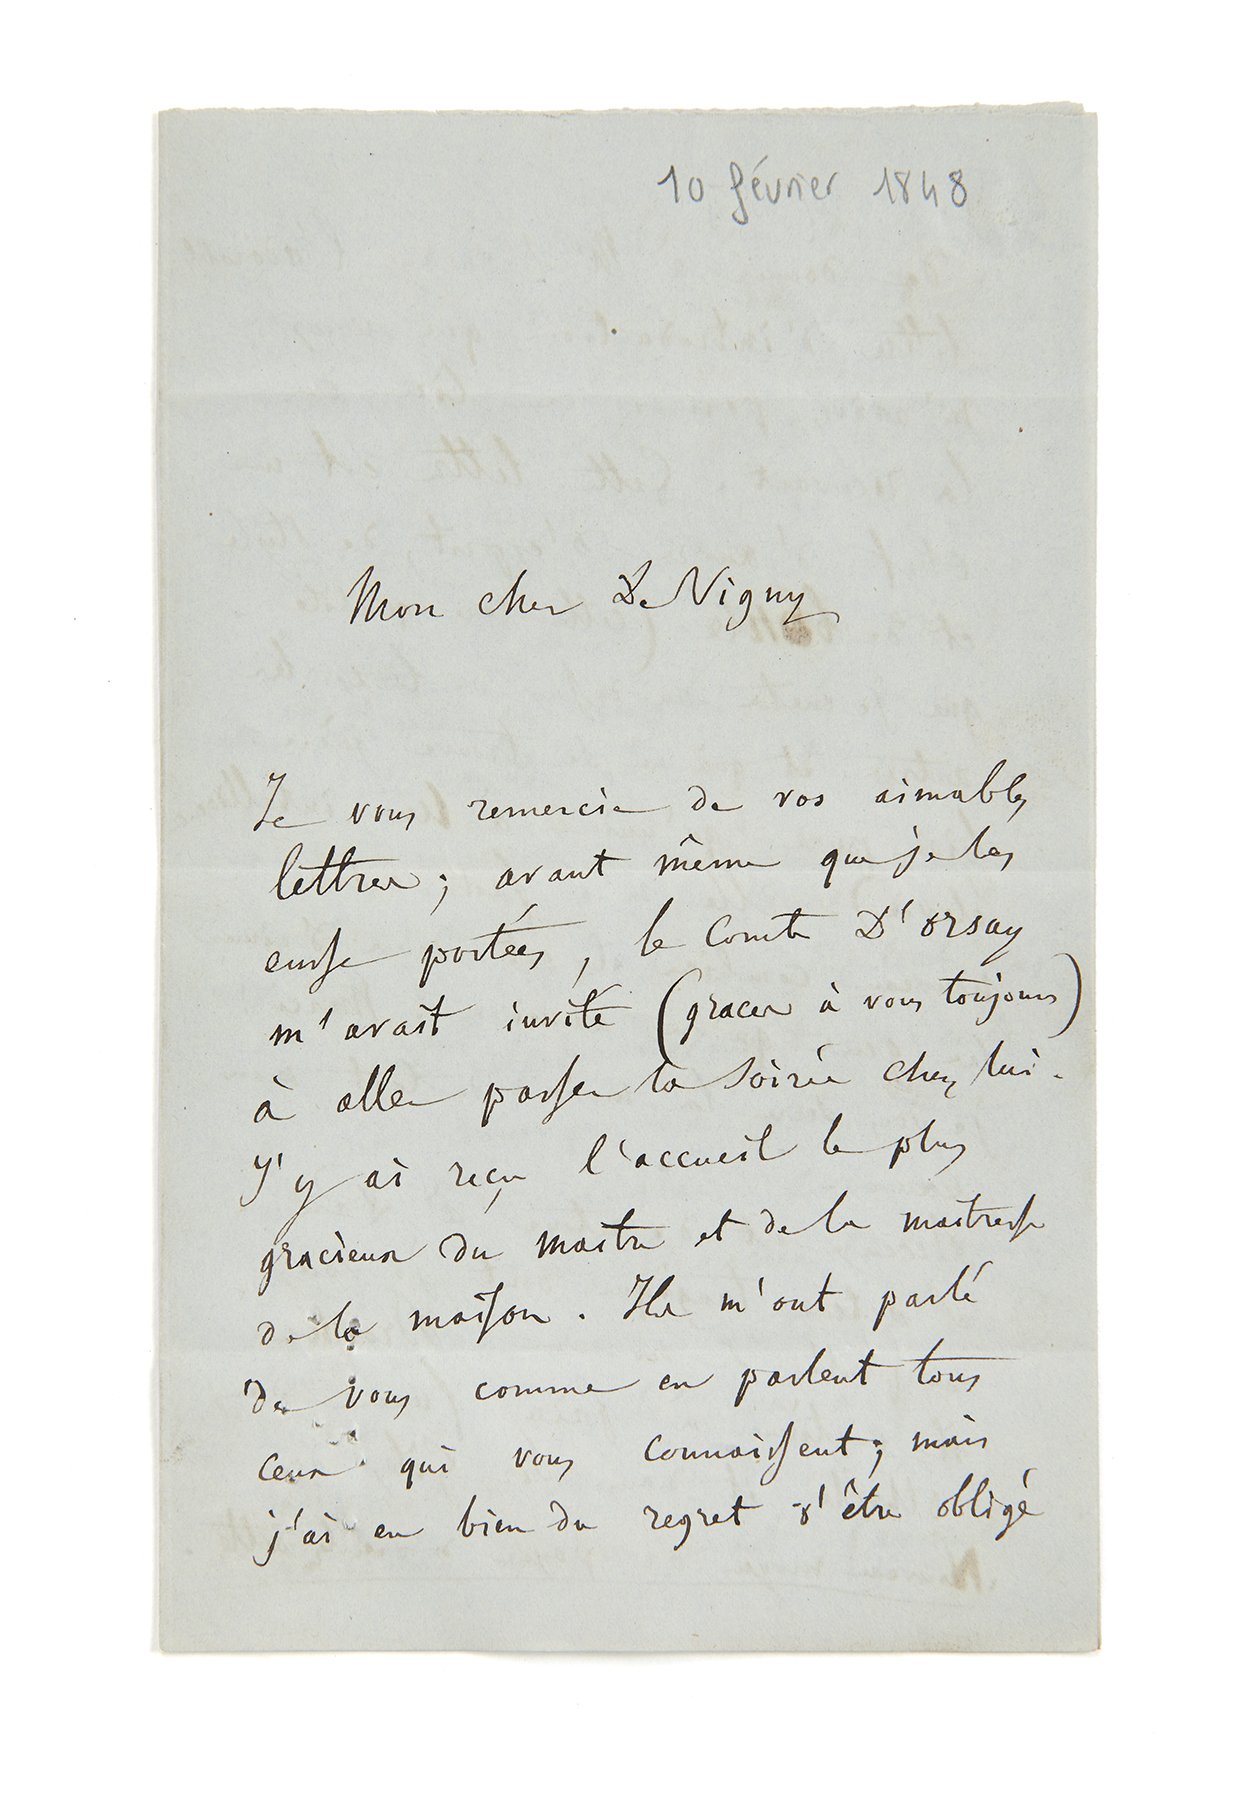 10 février 1848
Mon cher De Vigny
Je vous remercie de vos aimables
lettres ; avant même que je les
eusse portées, le Comte D'orsay
m'avait invité (graces à vous toujours)
à aller passer la soirée chez lui.
J'y ai reçu l'accueil le plus
gracieux du maitre et de la maitresse
de la maison. Ils m'ont parlé
de vous comme en parlent tous
ceux qui vous connaissent ; mais
j'ai eu bien du regret d'être obligé